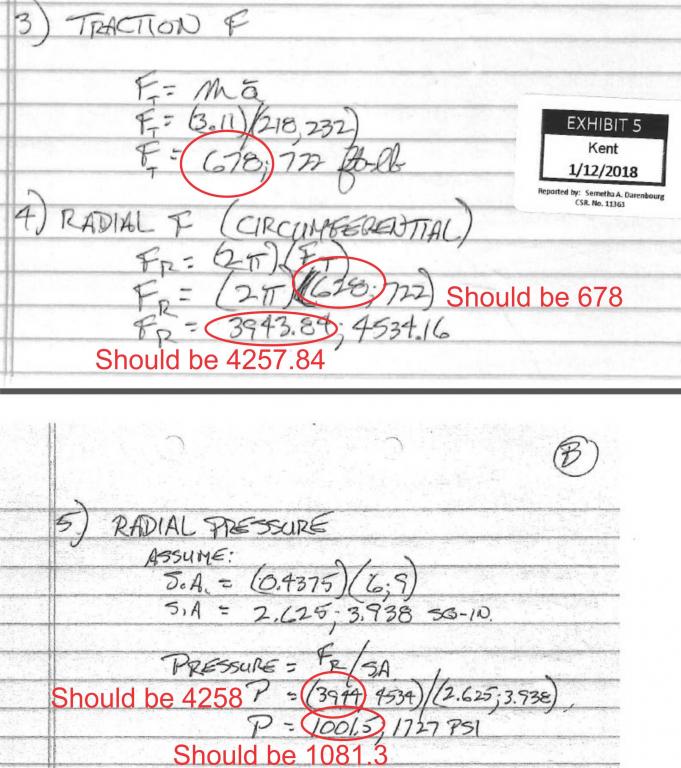 3) TRACTION F
F_T = m ā
F_T = (3.11)(218, 232)
F_T = 678; 722 ft-lb
EXHIBIT 5
Kent
1/12/2018
Reported by: Semetha A. Darenbourg
CSR. No. 11363
4) RADIAL F (CIRCUMFERENTIAL)
F_R = (2π)(F_T)
F_R = (2π)(628; 722) Should be 678
F_R = 3943.84; 4534.16
Should be 4257.84
B
5) RADIAL PRESSURE
ASSUME:
S.A. = (0.4375)(6; 9)
S.A = 2.625; 3.938 SQ-IN.
PRESSURE = F_R/SA
Should be 4258 P = (3944; 4534)/(2.625; 3.938)
P = 1001.5, 1727 PSI
Should be 1081.3